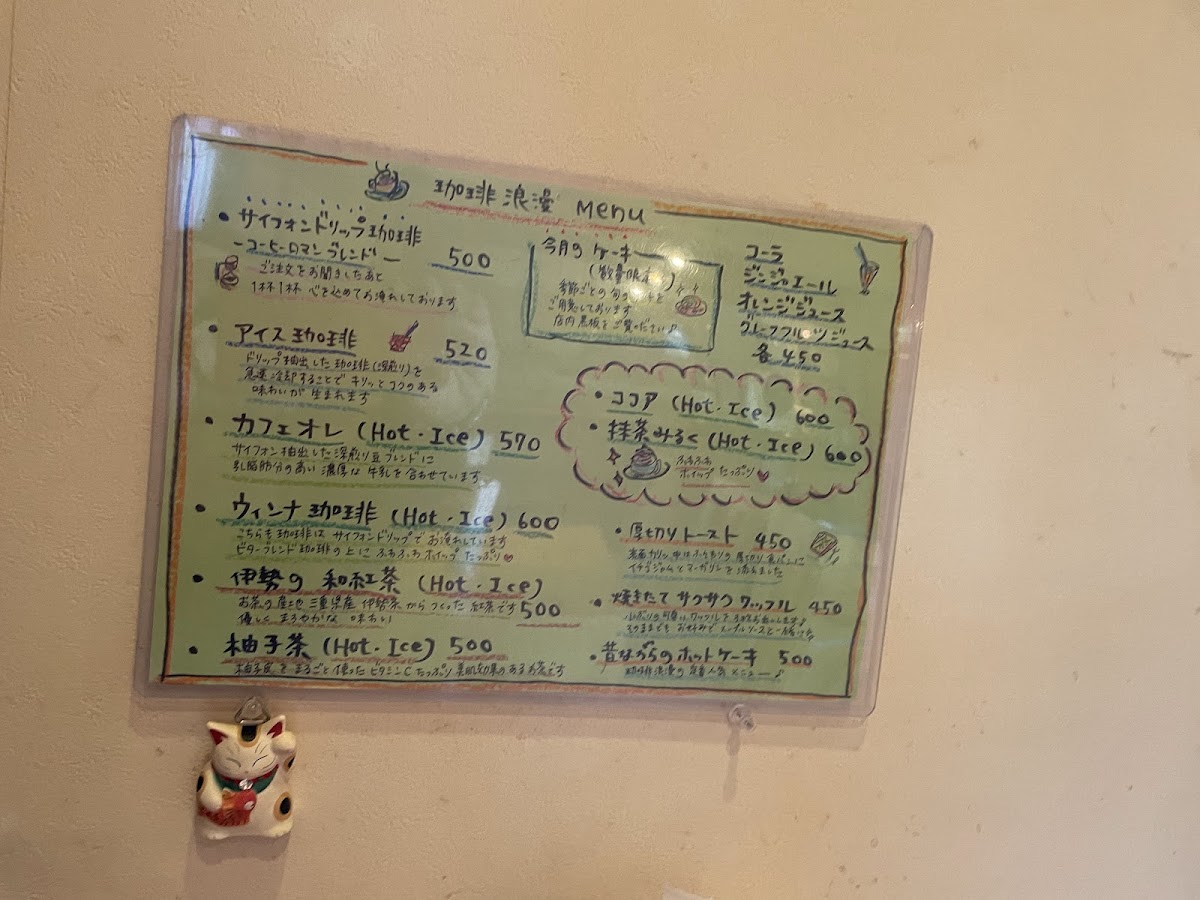 珈琲浪漫 Menu
サイフォンドリップ珈琲
ーコーヒーロマンブレンドー 500
ご注文をお聞きしたあと
1杯1杯 心を込めてお淹れしております
アイス珈琲 520
ドリップ抽出した珈琲(深煎り)を
急速冷却することで キリッとコクのある
味わいが 生まれます
カフェオレ (Hot・Ice) 570
サイフォン抽出した深煎り豆ブレンドに
乳脂肪分の高い 濃厚な 牛乳を合わせています
ウィンナ珈琲 (Hot・Ice) 600
こちらも珈琲は サイフォンドリップで お淹れしています
ビターブレンド珈琲の上に ふわふわ ホイップ たっぷり♥
伊勢の 和紅茶 (Hot・Ice)
お茶の産地 三重県産 伊勢茶から つくった 紅茶です 500
優しく まろやかな 味わい
柚子茶 (Hot・Ice) 500
柚子皮を まるごと 使った ビタミンC たっぷり 美肌効果のあるお茶です
今月の ケーキ
(数量限定)
季節ごとの旬の
ご用意しております
店内 黒板を ご覧ください♪
コーラ
ジンジャエール
オレンジジュース
グレープフルーツジュース
各 450
ココア (Hot・Ice) 600
抹茶みるく (Hot・Ice) 600
ふわふわ
ホイップ たっぷり♥
厚切りトースト 450
表面カリッ 中はふんわりの 厚切り食パンに
イチゴジャムとマーガリンを 添えました
焼きたて サクサク ワッフル 450
昔ながらのホットケーキ 500
珈琲浪漫の 定番人気 メニュー♪